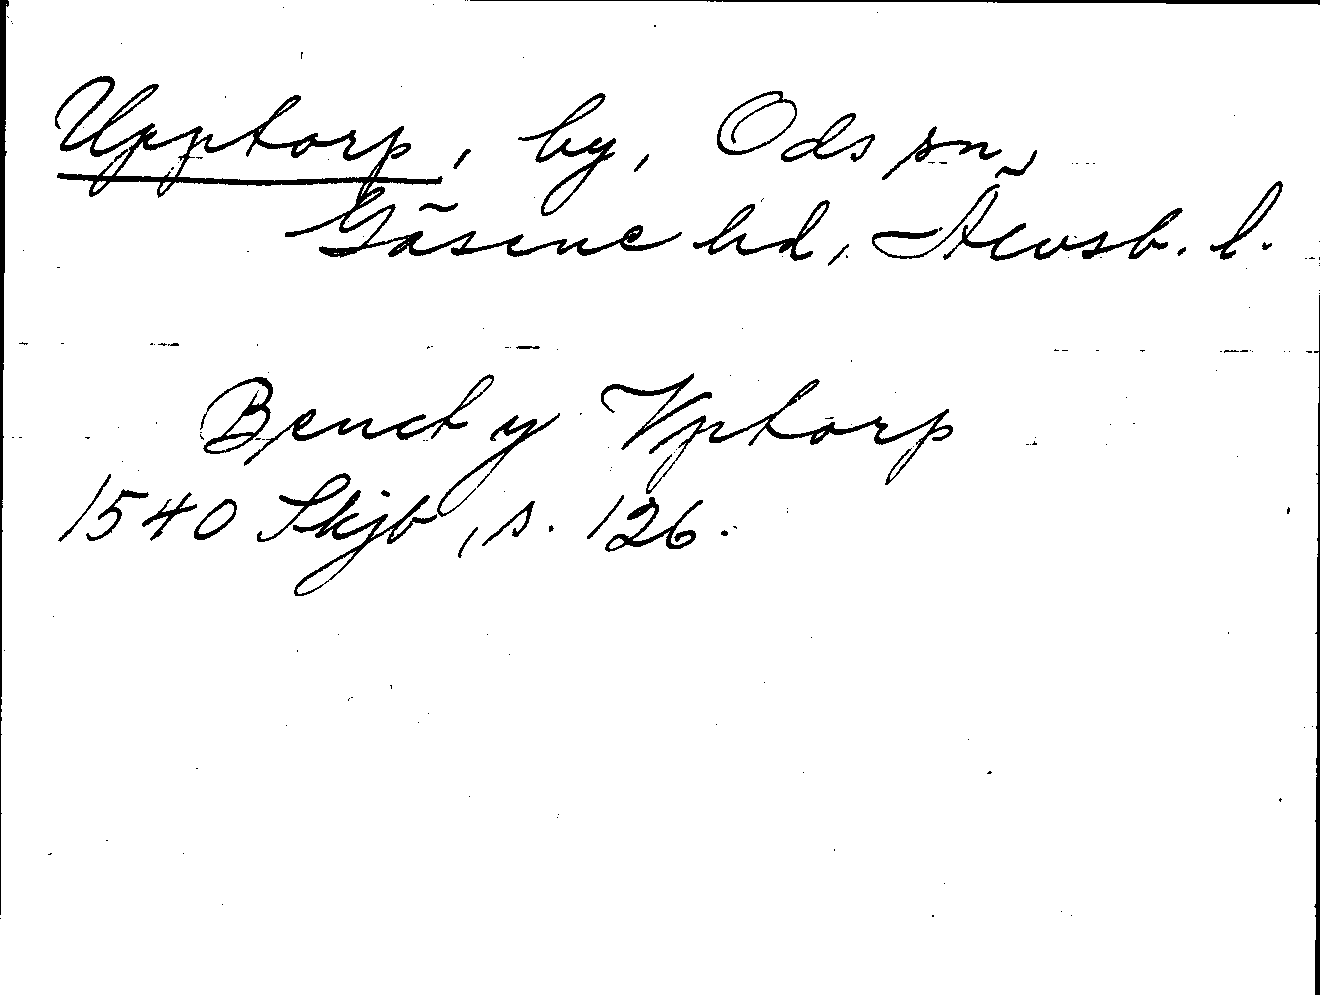 Upptorp, by, Ods sn,
Gäsene hd, Älvsb. l.
Benct y Vptorp
1540 Skjb, s. 126.